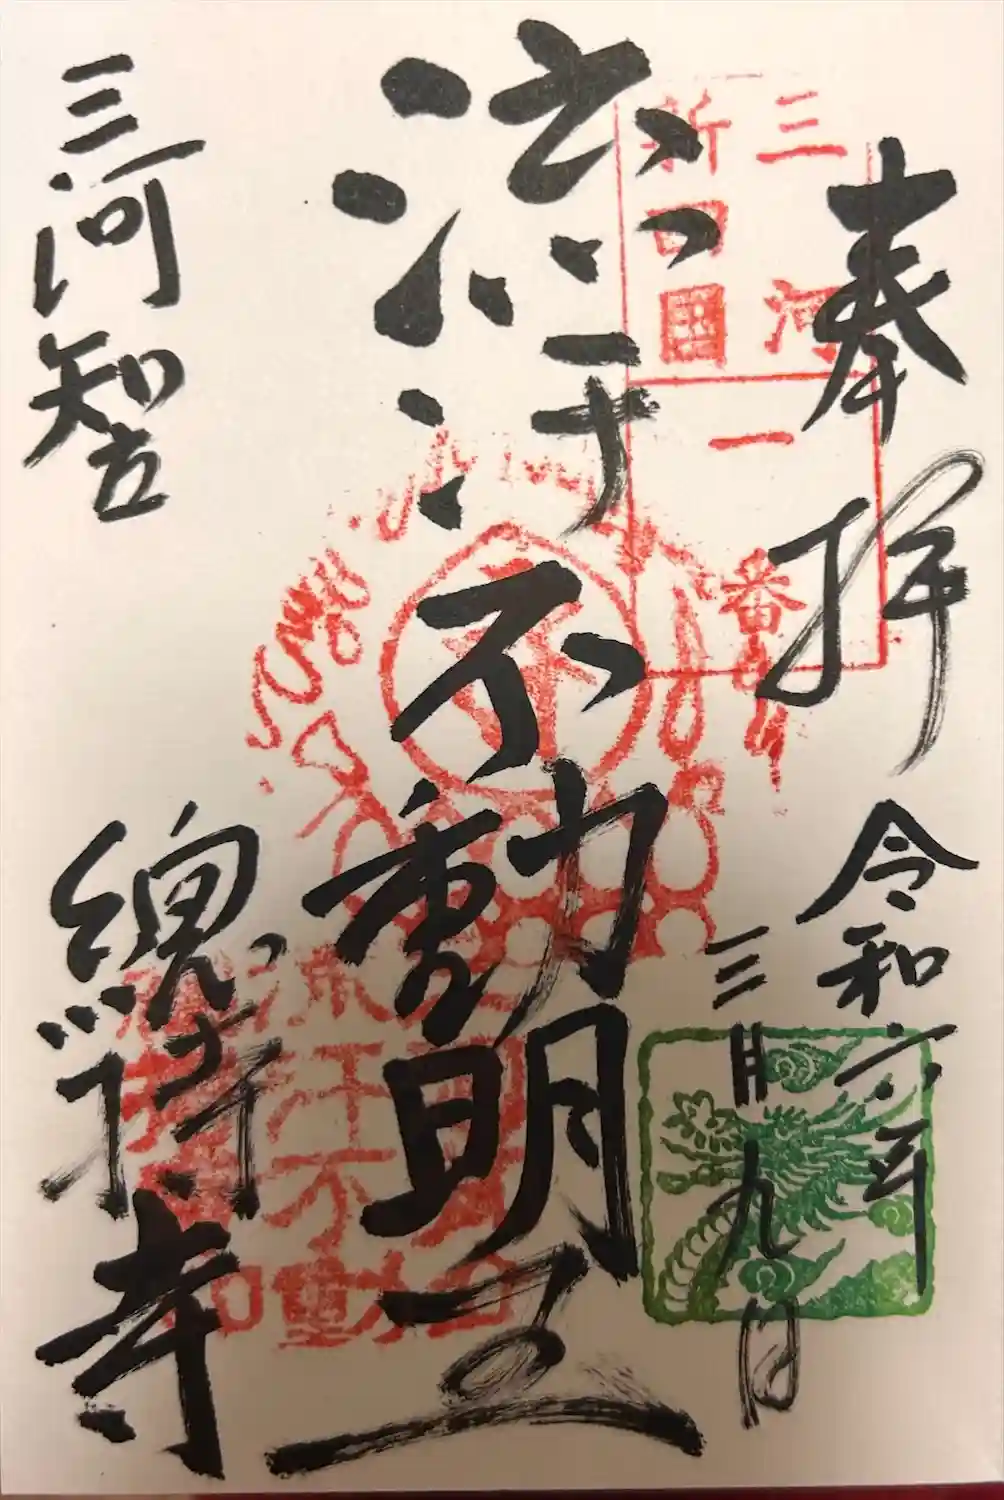 奉拝
令和六年
三月九日
三河
新四国
一番
流汗不動明王
三河智立
總持寺